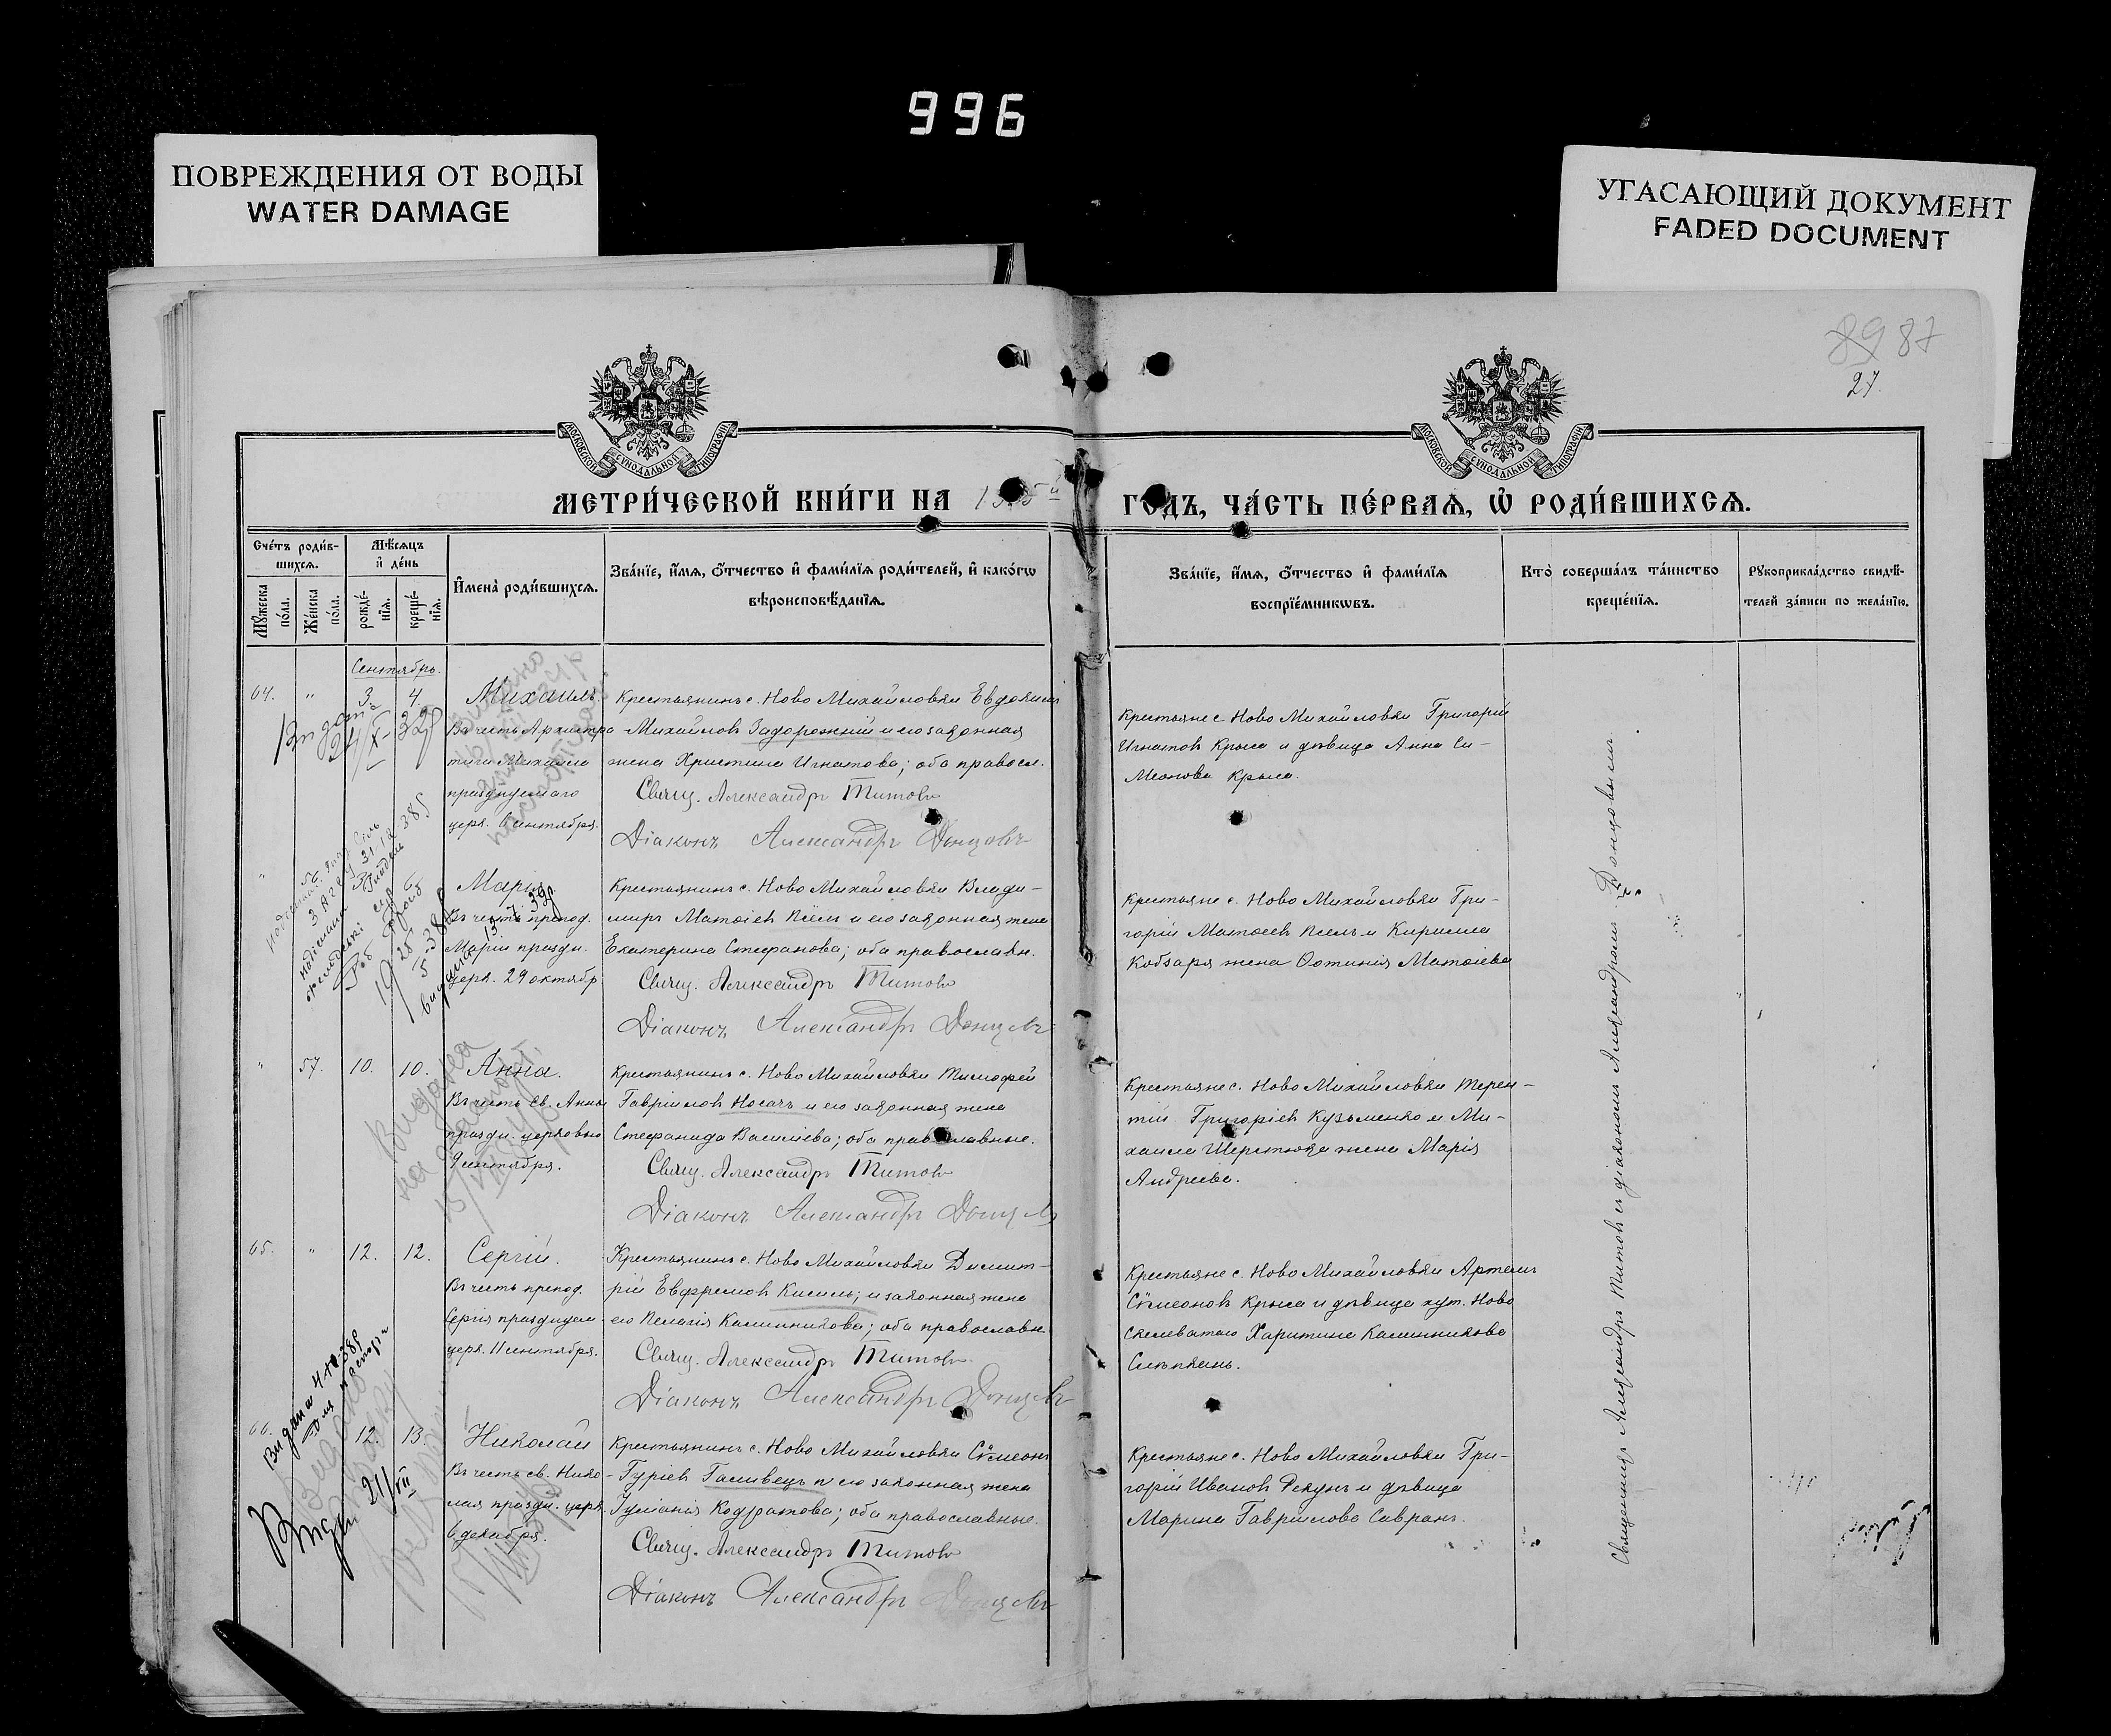 996
ПОВРЕЖДЕНИЯ ОТ ВОДЫ
WATER DAMAGE
УГАСАЮЩИЙ ДОКУМЕНТ
FADED DOCUMENT
89 87
27.
МОСКОВСКОЙ СУНОДАЛЬНОЙ ТИПОГРАФІИ
МОСКОВСКОЙ СУНОДАЛЬНОЙ ТИПОГРАФІИ
МЕТРИ́ЧЕСКОЙ КНИ́ГИ НА
ГОДЪ, ЧА́СТЬ ПЕ́РВАѦ, Ѡ҆ РОДИ́ВШИХСѦ.
Сче́тъ роди́в-
шихсѧ.
Мꙋ́жеска по́ла.
Же́нска по́ла.
Мѣ́сѧцъ
и҆ де́нь
рожде́-нїѧ.
креще́-нїѧ.
И҆мена̀ роди́вшихсѧ.
Зва́нїе, и҆́мѧ, ѻ҆́тчество и҆ фами́лїѧ роди́телей, и҆ како́гѡ
вѣроисповѣ́данїѧ.
Зва́нїе, и҆́мѧ, ѻ҆́тчество и҆ фами́лїѧ
воспрїе́мникѡвъ.
Кто̀ соверша́лъ та́инство
креще́нїѧ.
Рꙋкоприкла́дство свидѣ́-
телей за́писи по жела́нїю.
Сентябрь.
64. " 3 4 Михаилъ.
Въ честь Архистра
тига Михаила
празднуемаго
церк. 6 сентября.
Крестьянинъ с. Ново Михайловки Евдокимъ
Михайловъ Задорожній и его законная
жена Христина Игнатова; оба правосл.
Свящ. Александръ Титовъ
Діаконъ Александръ Донцовъ
Крестьяне с Ново Михайловки Григорій
Игнатовъ Крыса и дѣвица Анна Си-
меонова Крыса.
" 56 Марія
Въ честь препод.
Маріи праздн.
церк. 29 октябр.
Крестьянинъ с. Ново Михайловки Влади-
миръ Матѳіевъ и его законная жена
Екатерина Стефанова; оба православн.
Свящ. Александръ Титовъ
Діаконъ Александръ Донцовъ
Крестьяне с. Ново Михайловки Гри-
горій Матѳіевъ и Кирилла
Кобзаря жена Фотинія Матѳіева
" 57. 10. 10. Анна.
Въ честь св. Анны
праздн. церковью
9 сентября.
Крестьянинъ с. Ново Михайловки Тимофей
Гавріиловъ Носачъ и его законная жена
Стефанида Василіева; оба православные.
Свящ. Александръ Титовъ
Діаконъ Александръ Донцовъ
Крестьяне с. Ново Михайловки Терен-
тій Григоріевъ Кузьменко и Ми-
хаила Шерстюка жена Марія
Андреева.
65. " 12. 12. Сергій.
Въ честь препод.
Сергія празднуем.
церк. 11 сентября.
Крестьянинъ с. Ново Михайловки Димит-
рій Евфремовъ Кисиль; и законная жена
его Пелагія Калинникова; оба православн.
Свящ. Александръ Титовъ
Діаконъ Александръ Донцовъ
Крестьяне с. Ново Михайловки Артемъ
Сѷмеоновъ Крыса и дѣвица хут. Ново
Харитина Калинникова
66. 12. 13. Николай
Въ честь св. Нико-
лая праздн. церк.
6 декабря.
Крестьянинъ с. Ново Михайловки Сѷмеонъ
Гуріевъ Галивецъ и его законная жена
Іуліанія Кодратова; оба православные.
Свящ. Александръ Титовъ
Діаконъ Александръ Донцовъ
Крестьяне с. Ново Михайловки Гри-
горій Ивановъ Рекунъ и дѣвица
Марина Гавріилова Савранъ.
Священникъ Александръ Титовъ съ діакономъ Александромъ Донцовымъ.